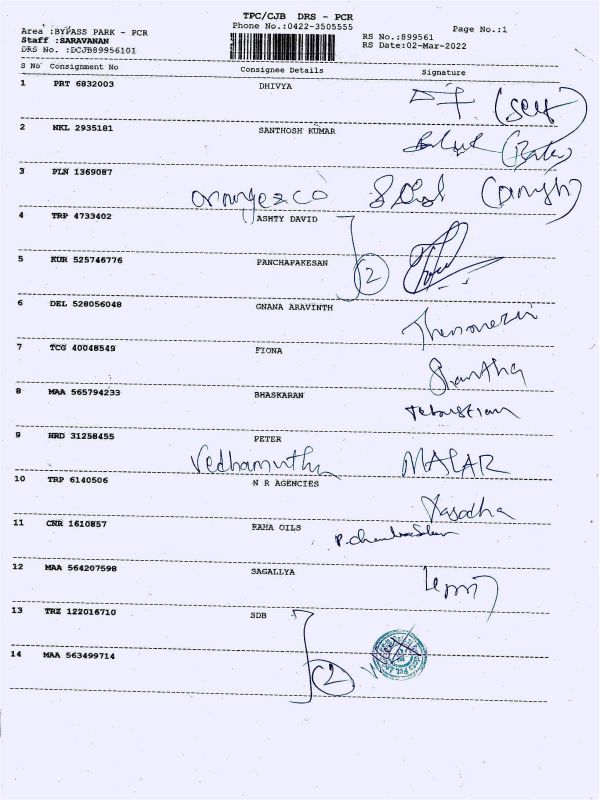 TPC/CJB DRS - PCR
Area :BYPASS PARK - PCR Phone No.:0422-3505555 Page No.:1
Staff :SARAVANAN RS No.:899561
DRS No. :DCJB89956101 RS Date:02-Mar-2022
S No Consignment No Consignee Details Signature
1 PRT 6832003 DHIVYA (Self)
2 NKL 2935181 SANTHOSH KUMAR
3 PLN 1369087
4 TRP 4733402 ASHTY DAVID
5 KUR 525746776 PANCHAPAKESAN 2
6 DEL 528056048 GNANA ARAVINTH
7 TCG 40048549 FIONA Shantha
8 MAA 565794233 BHASKARAN
9 HRD 31258455 PETER
Vedhamuthu MALAR
10 TRP 6140506 N R AGENCIES Yasodha
11 CNR 1610857 RAHA OILS
12 MAA 564207598 SAGALLYA
13 TRZ 122016710 SDB
14 MAA 563499714 2